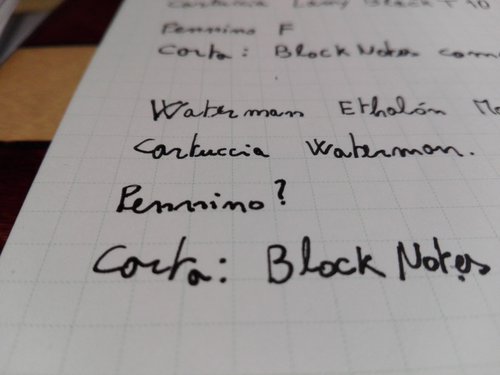 Cartuccia Lamy Black T10
Pennino F
Carta: Block Notes com
Waterman Ethalón Ma
Cartuccia Waterman.
Pennino?
Carta: Block Notes